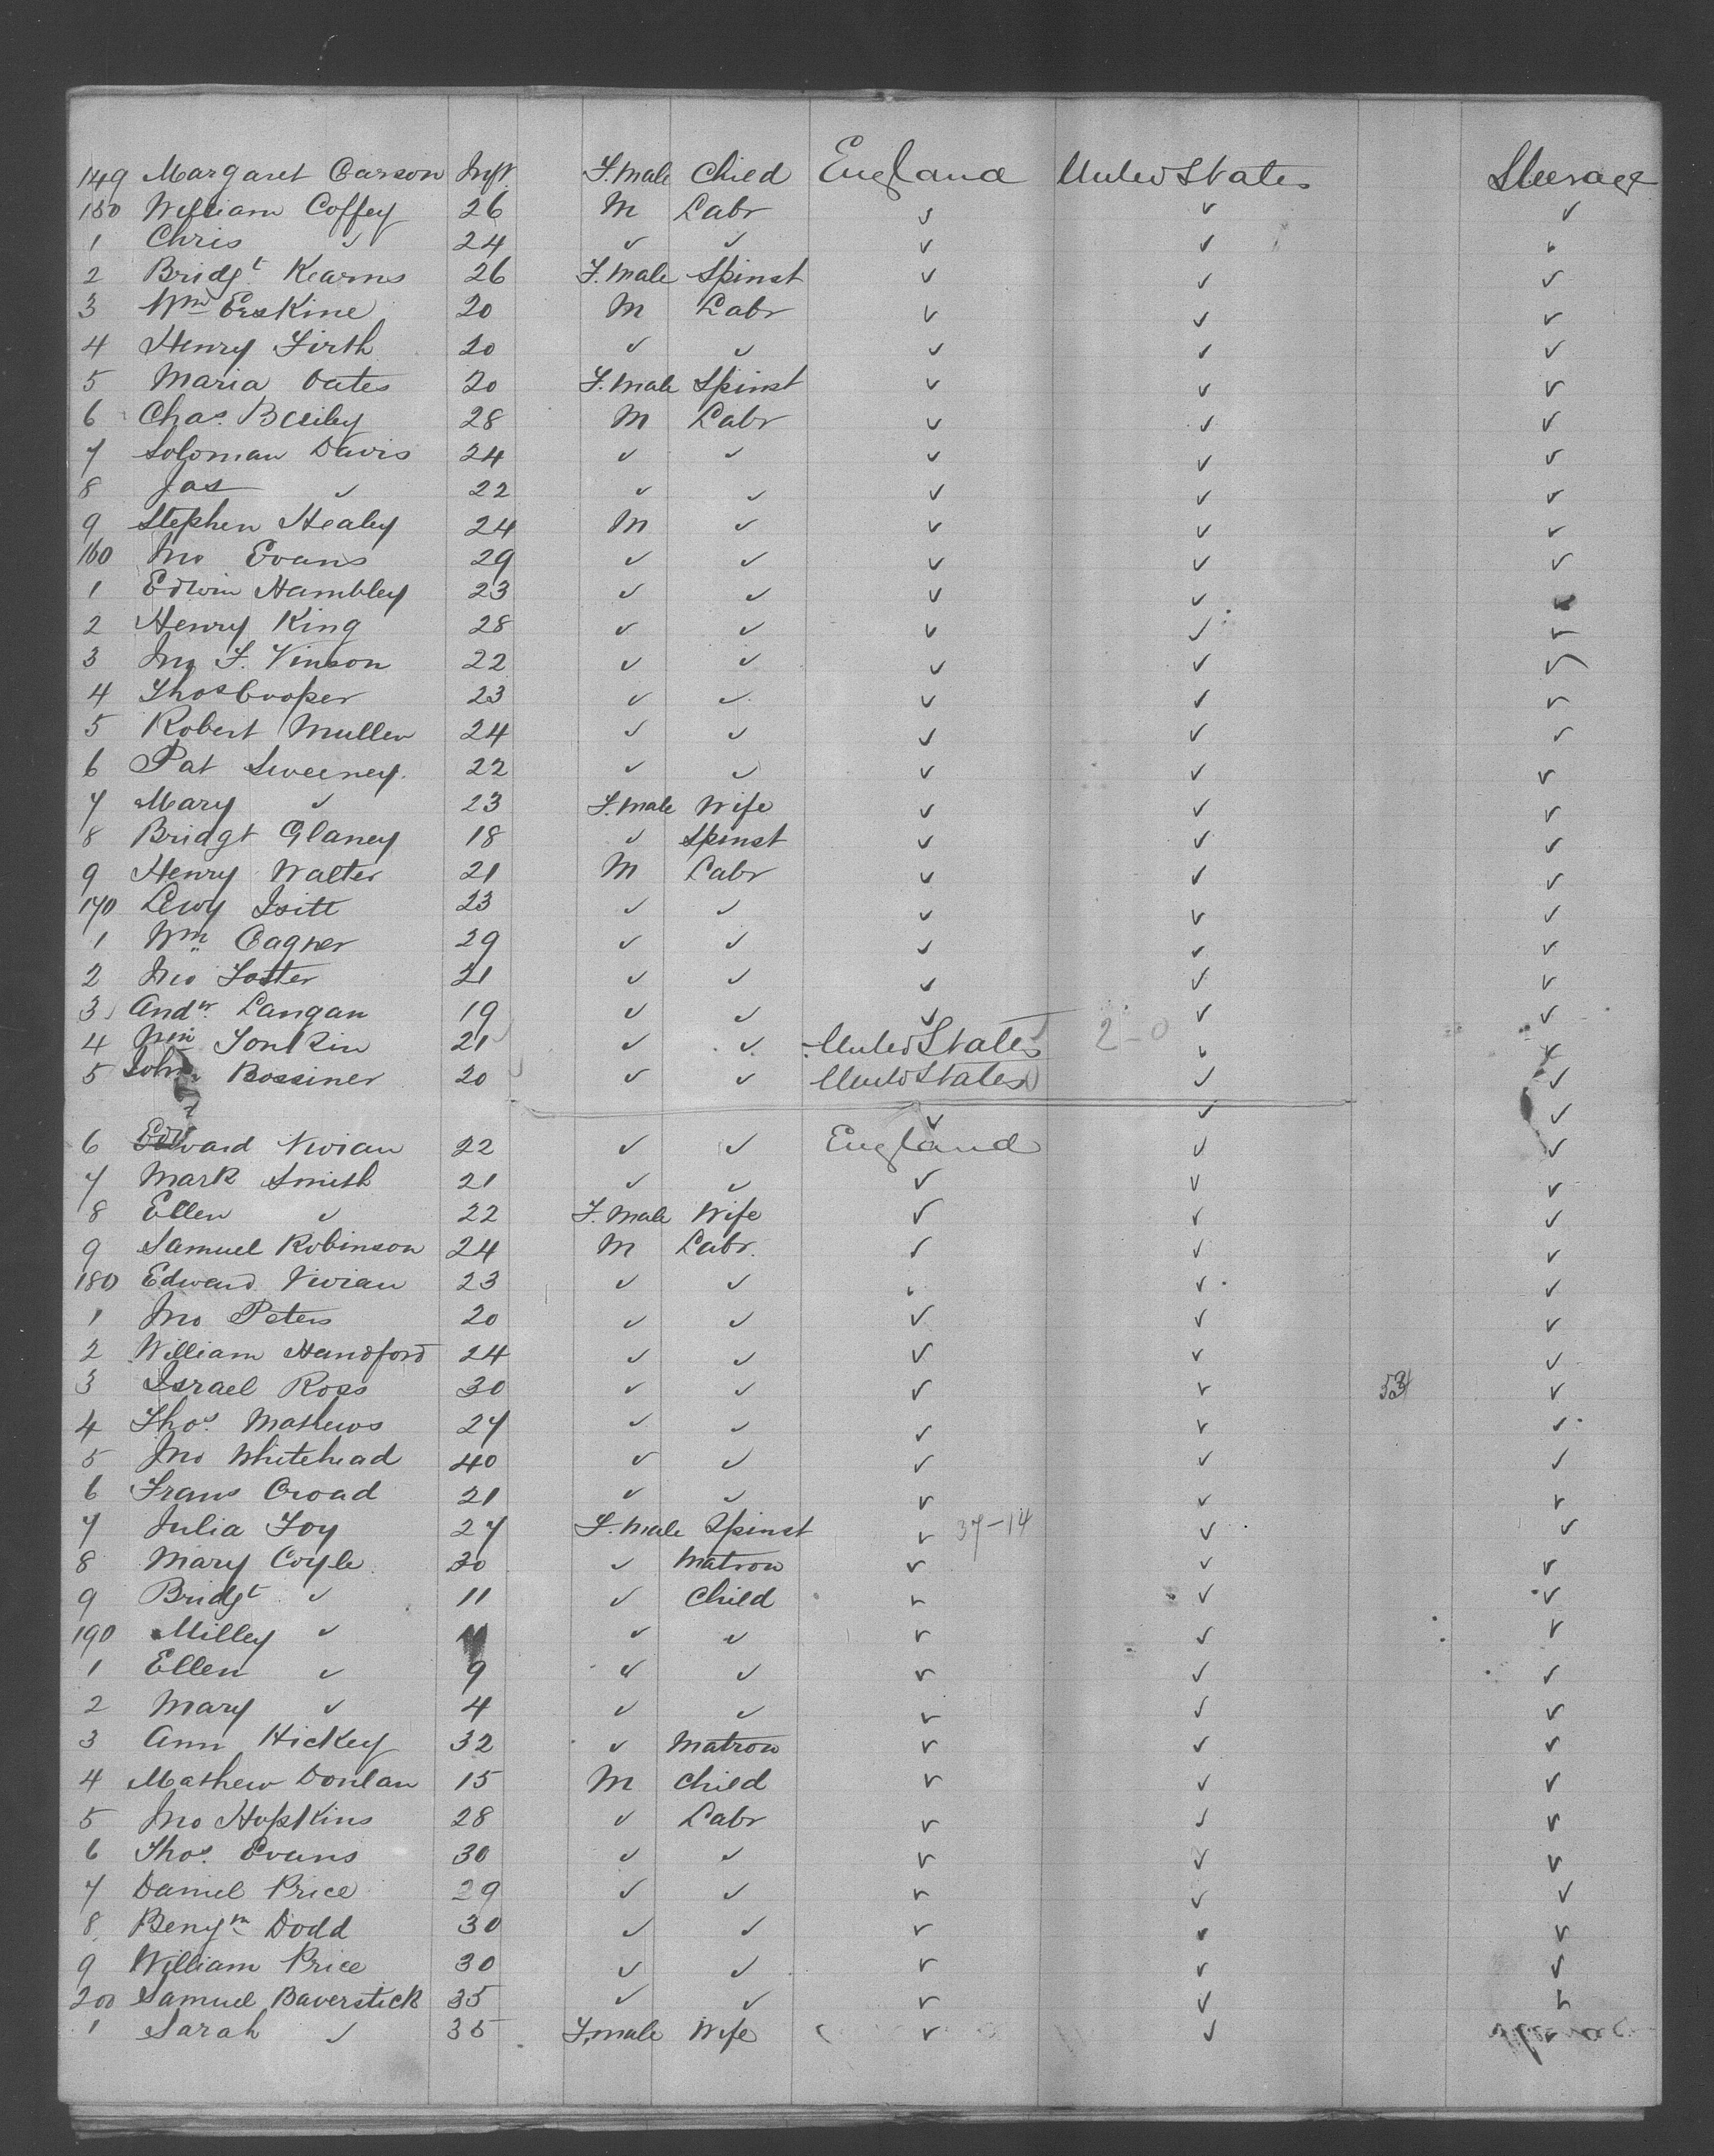 149 Margaret Carson Inft F.male Child England United States Steerage
150 William Coffey 26 M Labr ✓ ✓ ✓
1 Chris ✓ 24 ✓ ✓ ✓ ✓ ✓
2 Bridgt Kearns 26 F.male Spinst ✓ ✓ ✓
3 Wm Erskine 20 M Labr ✓ ✓ ✓
4 Henry Firth 20 ✓ ✓ ✓ ✓ ✓
5 Maria Oates 20 F.male Spinst ✓ ✓ ✓
6 Chas. Bailey 28 M Labr ✓ ✓ ✓
7 Soloman Davis 24 ✓ ✓ ✓ ✓ ✓
8 Jas ✓ 22 ✓ ✓ ✓ ✓ ✓
9 Stephen Healey 24 M ✓ ✓ ✓ ✓
160 Jno Evans 29 ✓ ✓ ✓ ✓ ✓
1 Edwin Hambley 23 ✓ ✓ ✓ ✓ ✓
2 Henry King 28 ✓ ✓ ✓ ✓ ✓
3 Jno F. Vinson 22 ✓ ✓ ✓ ✓ ✓
4 Thos Cooper 23 ✓ ✓ ✓ ✓ ✓
5 Robert Mullen 24 ✓ ✓ ✓ ✓ ✓
6 Pat Sweeney 22 ✓ ✓ ✓ ✓ ✓
7 Mary ✓ 23 F.male Wife ✓ ✓ ✓
8 Bridgt Glaney 18 ✓ Spinst ✓ ✓ ✓
9 Henry Walter 21 M Labr ✓ ✓ ✓
170 Levy Isitt 23 ✓ ✓ ✓ ✓ ✓
1 Wm Cagner 29 ✓ ✓ ✓ ✓ ✓
2 Jno Foster 21 ✓ ✓ ✓ ✓ ✓
3 Andw. Langan 19 ✓ ✓ ✓ ✓ ✓
4 Wm Tonkin 21 ✓ ✓ United States 2-0 ✓ ✓
5 John Bossiner 20 ✓ ✓ United States ✓ ✓
✓ ✓ ✓
6 Edward Vivian 22 ✓ ✓ England ✓ ✓
7 Mark Smith 21 ✓ ✓ ✓ ✓ ✓
8 Ellen ✓ 22 F.male Wife ✓ ✓ ✓
9 Samuel Robinson 24 M Labr. ✓ ✓ ✓
180 Edward Vivian 23 ✓ ✓ ✓ ✓ ✓
1 Jno Peters 20 ✓ ✓ ✓ ✓ ✓
2 William Handford 24 ✓ ✓ ✓ ✓ ✓
3 Israel Ross 30 ✓ ✓ ✓ ✓ ✓
4 Thos. Mathews 27 ✓ ✓ ✓ ✓ ✓
5 Jno Whitehead 40 ✓ ✓ ✓ ✓ ✓
6 Frans Croad 21 ✓ ✓ ✓ ✓ ✓
7 Julia Foy 27 F.male Spinst ✓ 37-14 ✓ ✓
8 Mary Coyle 30 ✓ Matron ✓ ✓ ✓
9 Bridgt ✓ 11 ✓ Child ✓ ✓ ✓
190 Milley ✓ ✓ ✓ ✓ ✓ ✓
1 Ellen ✓ 9 ✓ ✓ ✓ ✓ ✓
2 Mary ✓ 4 ✓ ✓ ✓ ✓ ✓
3 Ann Hickey 32 ✓ Matron ✓ ✓ ✓
4 Mathew Donlan 15 M Child ✓ ✓ ✓
5 Jno Hopkins 28 ✓ Labr ✓ ✓ ✓
6 Thos. Evans 30 ✓ ✓ ✓ ✓ ✓
7 Daniel Price 29 ✓ ✓ ✓ ✓ ✓
8 Benjm Dodd 30 ✓ ✓ ✓ ✓ ✓
9 William Price 30 ✓ ✓ ✓ ✓ ✓
200 Samuel Baverstick 35 ✓ ✓ ✓ ✓ ✓
1 Sarah ✓ 35 F.male Wife ✓ ✓ ✓